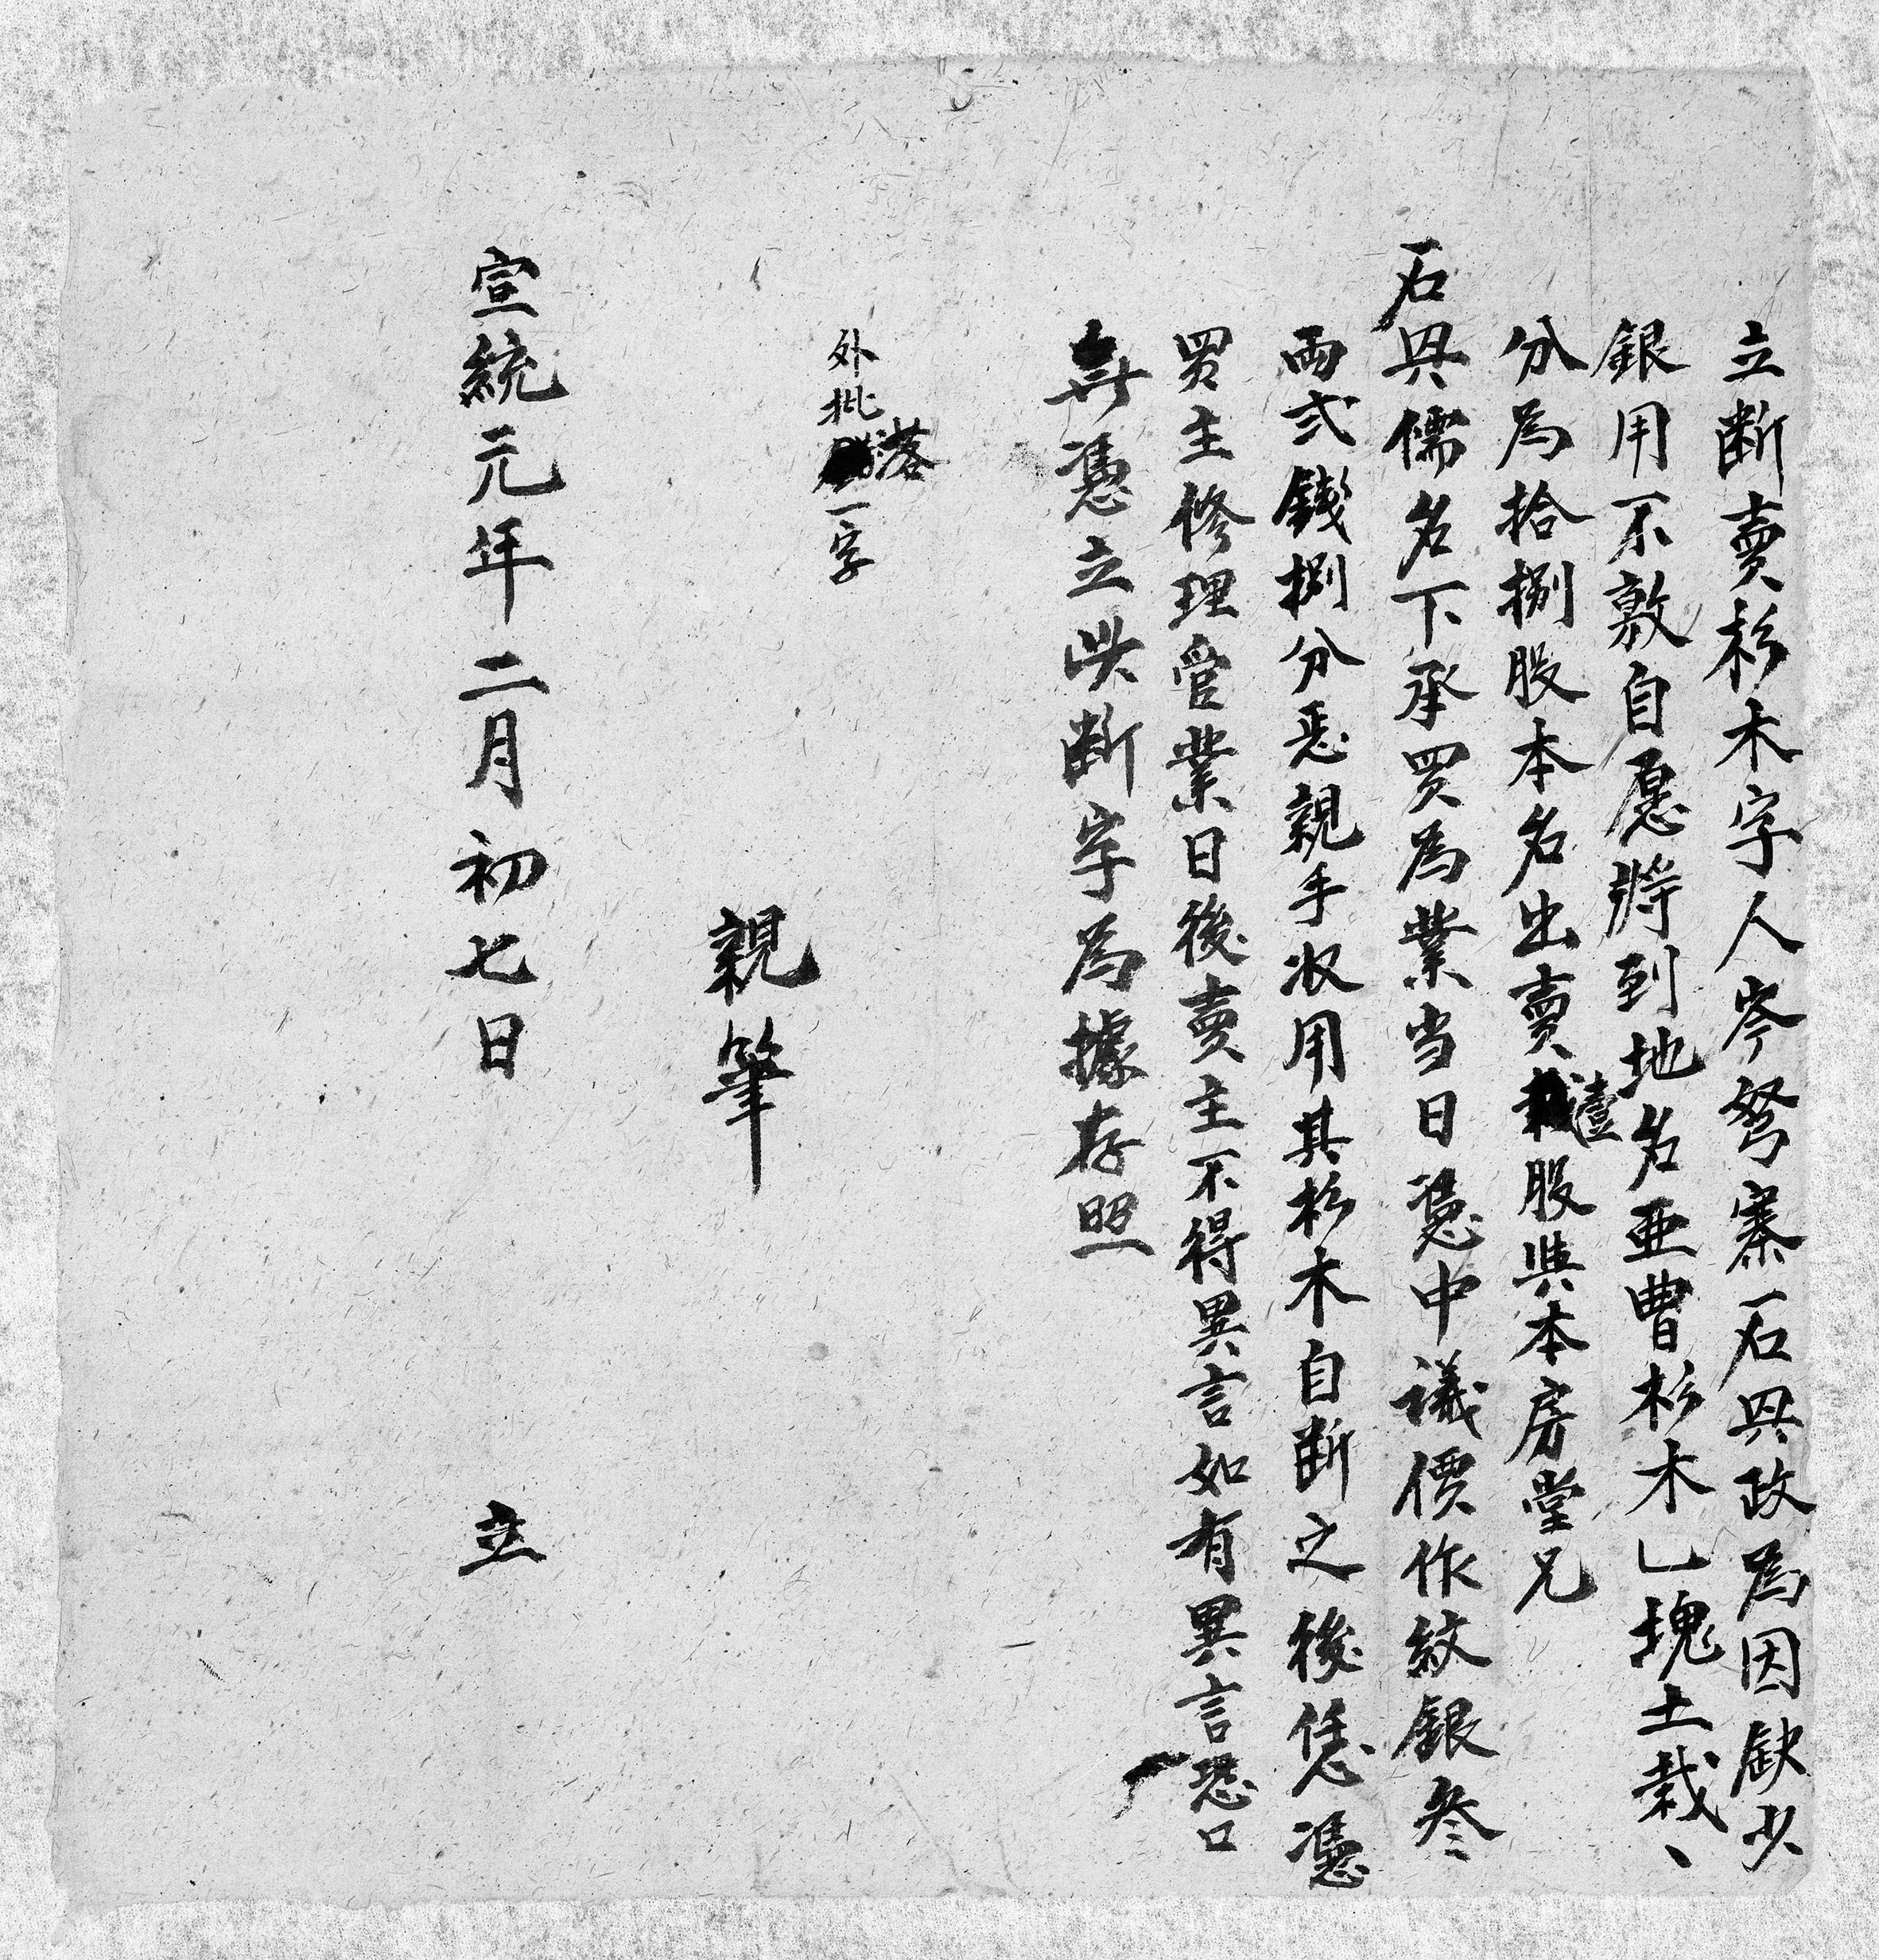 立断賣杉木字人岑弩寨石具政為因缺少
銀用不敷自愿將到地名亜曹杉木乚塊土栽、
分為拾捌股本名出賣壹股與本房堂兄
石具儒名下承買為業当日憑中議價作紋銀叁
両弍錢捌分悉親手收用其杉木自断之後恁憑
買主修理管業日後賣主不得異言如有異言恐口
無憑立此断字為據存照
外批落一字
親筆
宣統元年二月初七日 立